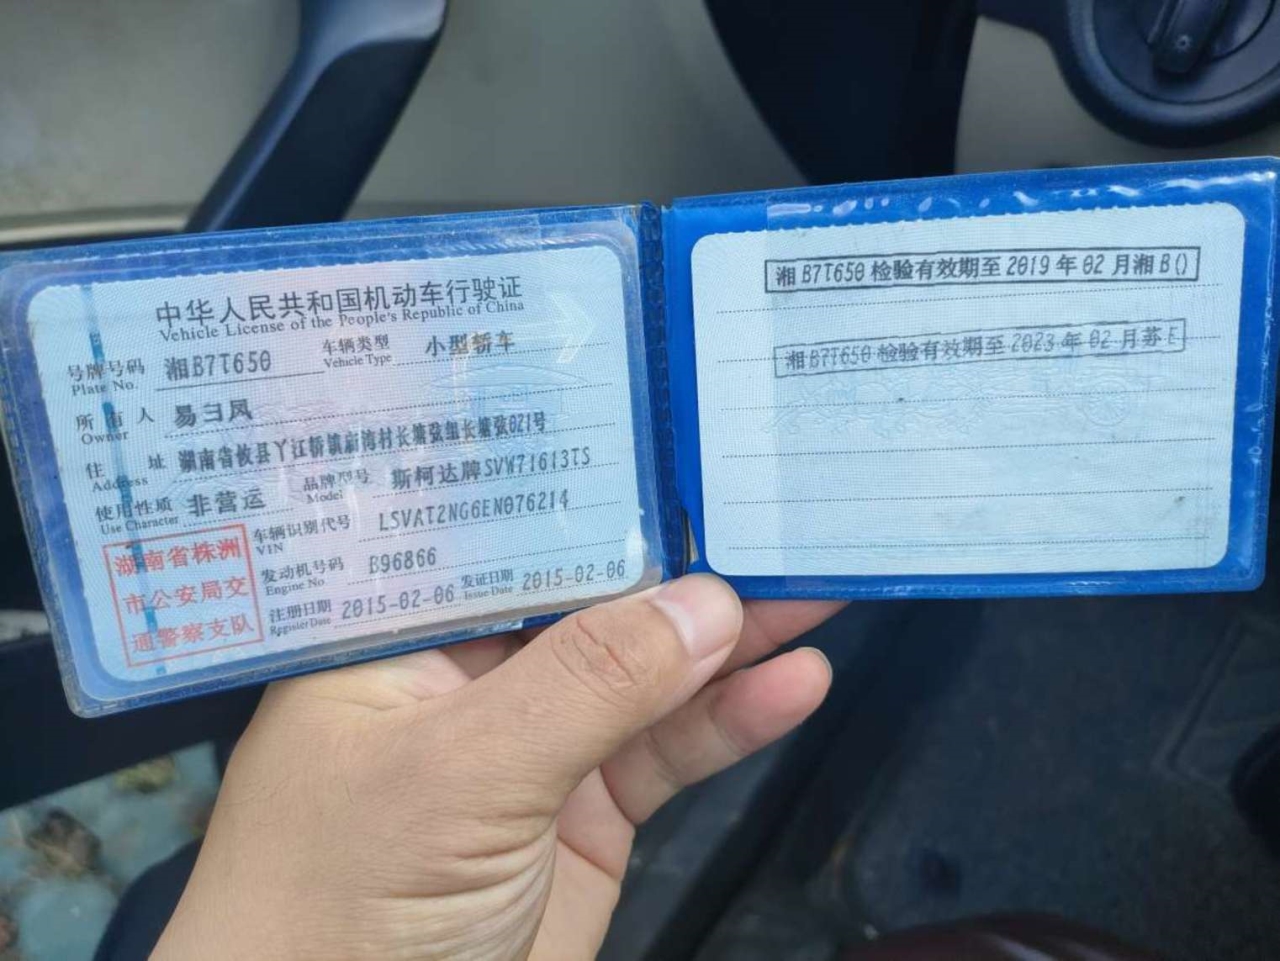 中华人民共和国机动车行驶证
Vehicle License of the People's Republic of China
号牌号码 湘B7T650 车辆类型 小型轿车
Plate No. Vehicle Type
所有人 易彐凤
Owner
住址 湖南省攸县丫江桥镇庙湾村长塘弦组长塘弦021号
Address
使用性质 非营运 品牌型号 斯柯达牌SVW71613TS
Use Character Model
车辆识别代号 LSVAT2NG6EN076214
VIN
发动机号码 B96866
Engine No
注册日期 2015-02-06 发证日期 2015-02-06
Register Date Issue Date
湖南省株洲
市公安局交
通警察支队
湘B7T650检验有效期至2019年02月湘B()
湘B7T650检验有效期至2023年02月苏E